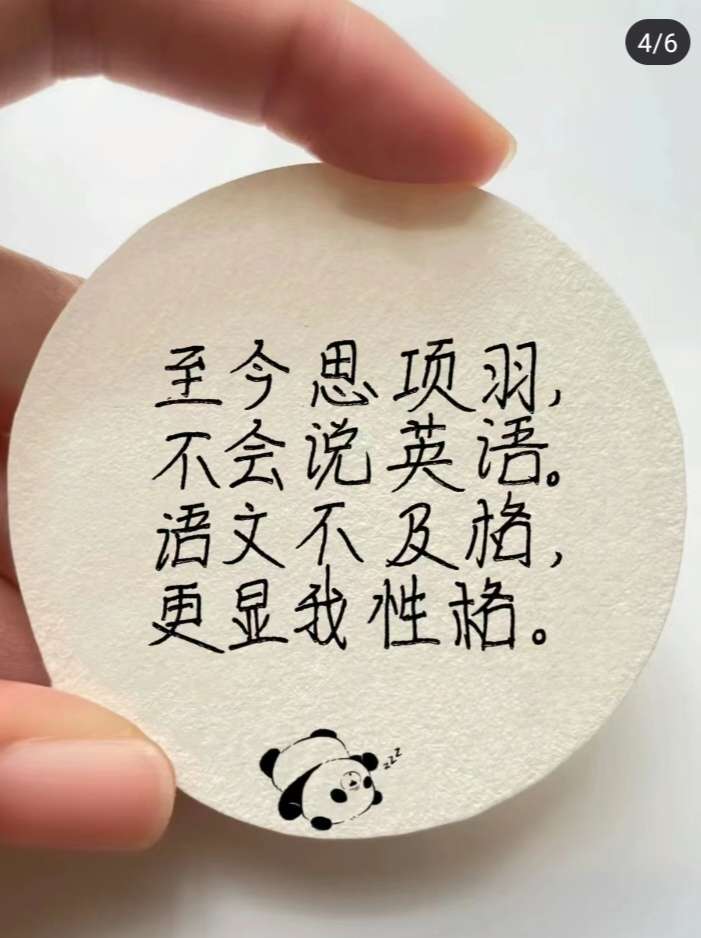 4/6
至今思项羽，
不会说英语。
语文不及格，
更显我性格。
zzz